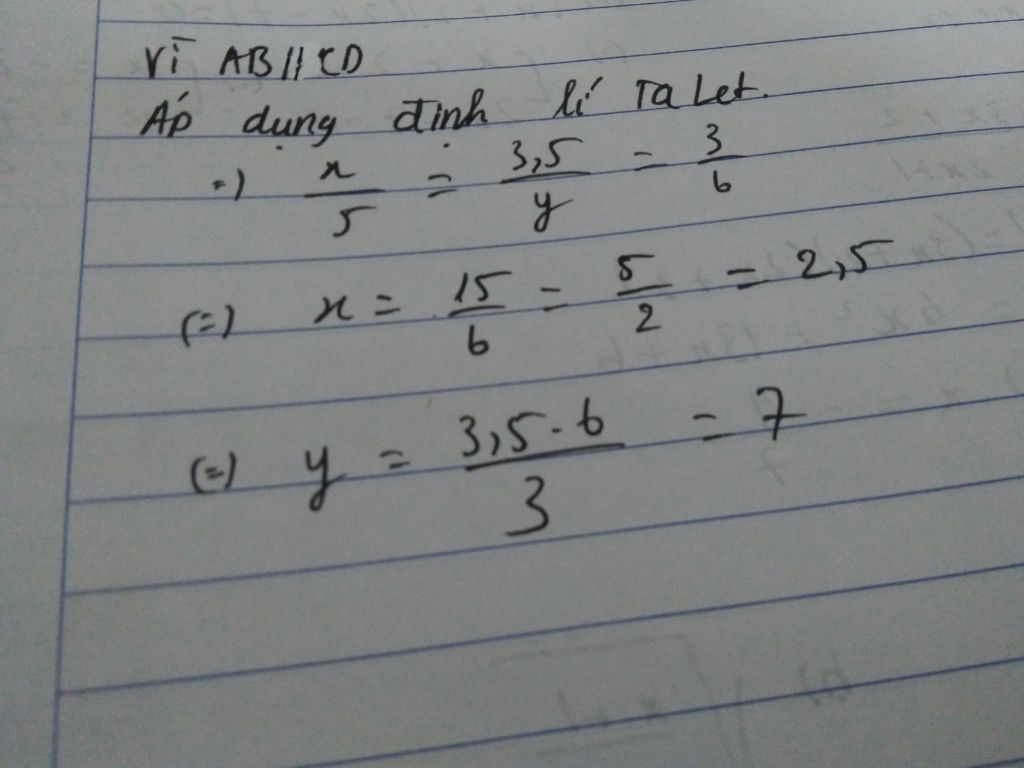 Vì AB // CD
Áp dụng định lí Ta Let.
=) x/5 = 3,5/y = 3/6
(=) x = 15/6 = 5/2 = 2,5
(=) y = 3,5.6/3 = 7